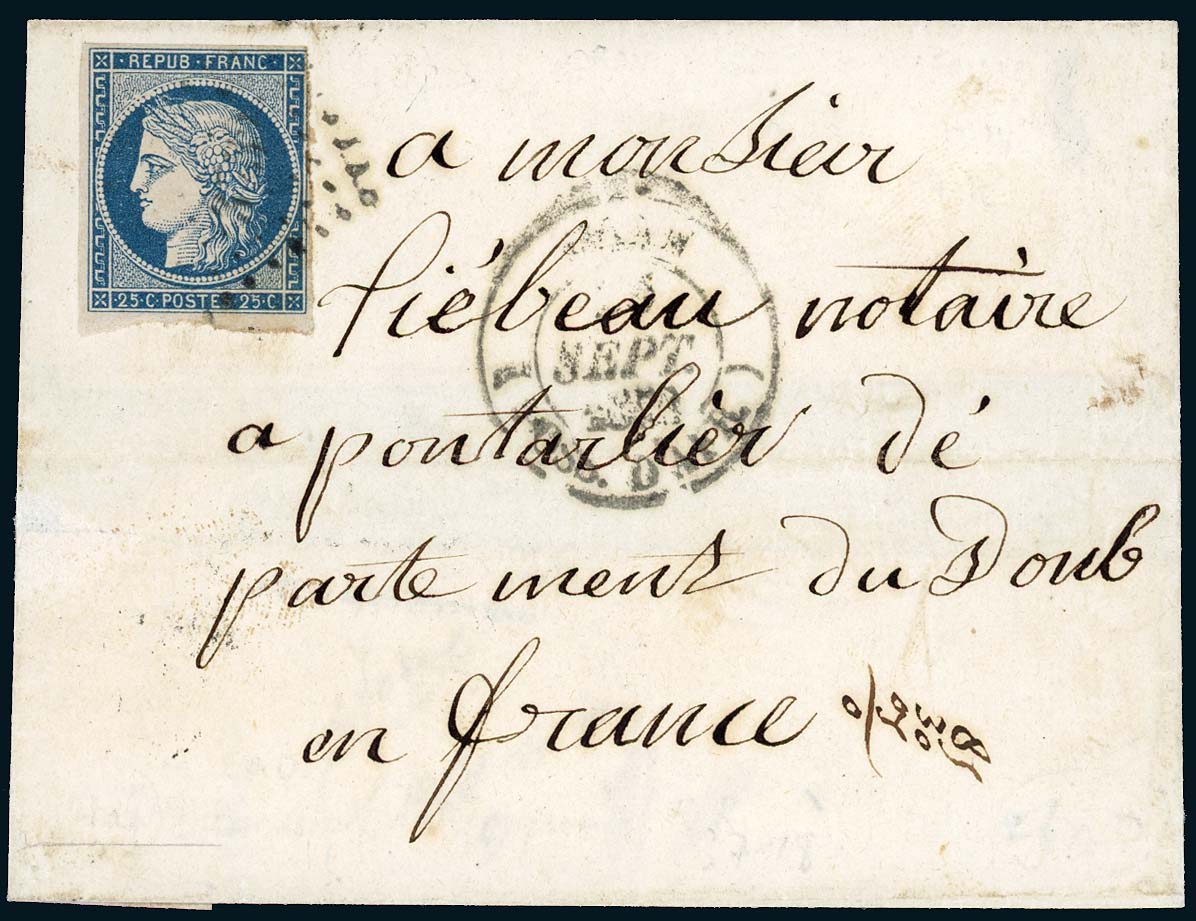 REPUB·FRANC·
25·C·POSTES 25·C
a monsieur
tiébeau notaire
SEPT.
a pontarlier dé
parte ment du Doub
en france